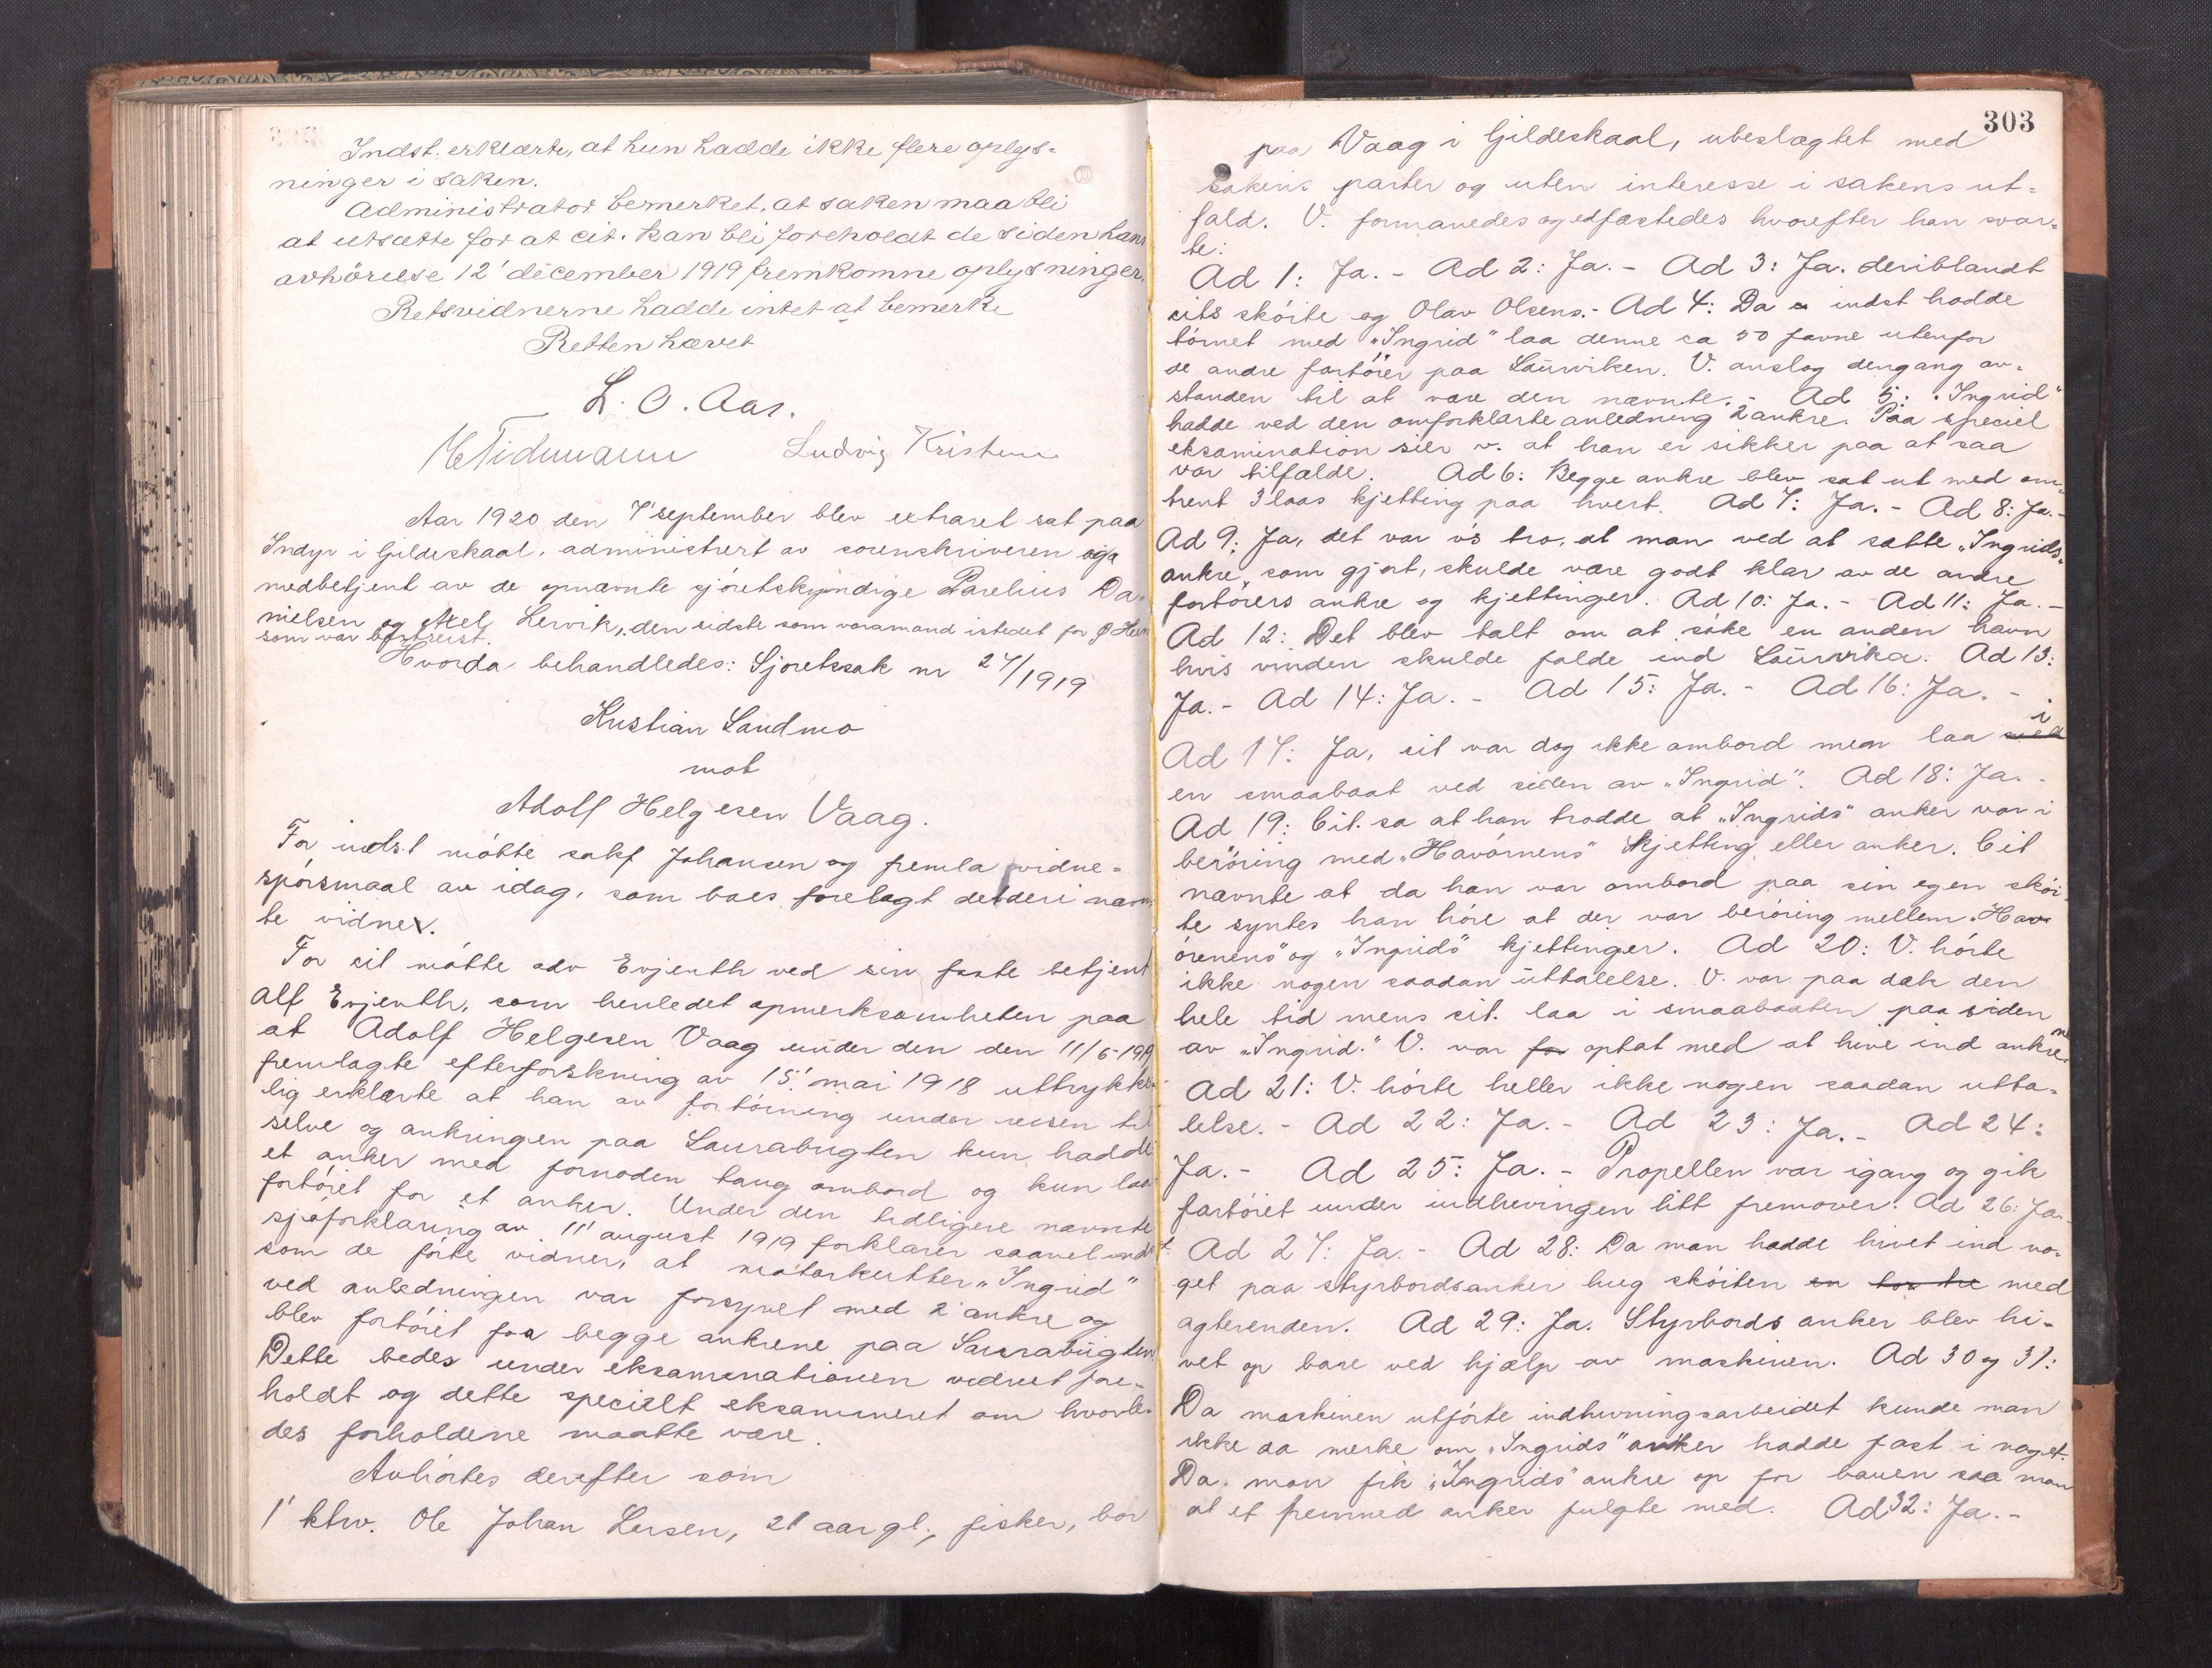 Indst. erklærte, at hun hadde ikke flere oplys=
ninger i saken.
Administrator bemerket, at saken maa bli
at utsætte for at cit. kan bli foreholdt de siden hans
avhörelse 12' december 1919 fremkomne oplysninger.
Retsvidnerne hadde intet at bemerke
Retten hævet
L. O. Aas.
Ludvig Kristensen
Aar 1920 den 7' september blev extraret sat paa
Indyr i Gildeskaal, administrert av sorenskriveren og
medbetjent av de opnævnte sjöretskyndige Parelius Da=
nielsen og Mel. Lervik, den sidste som varamand istedet for
som var bortreist.
Hvorda behandledes: Sjoretssak nr 27/1919
Kristian Sandmo
mot
Adolf Helgesen Vaag.
For indst mötte sakf Johansen og fremla vidne=
spörsmaal av idag, som baes forelagt det deri nævn
te vidner.
For cit mötte adv Evjenth ved sin faste betjent
Alf Evjenth, som henledet opmerksomheten paa
at Adolf Helgesen Vaag under den den 11/6-1919
fremlagte efterforskning av 15' mai 1918 uttrykke-
lig erklærte at han av fortöining under reisen til
selve og ankringen paa Laurabugten kun hadde
et anker med fornöden taug ombord og kun laa
fortöiet for et anker. Under den tidligere nævnte
sjøforklaring av 11' august 1919 forklarer saavel indst.
som de förte vidner, at motorkutter "Ingrid"
ved anledningen var forsynet med 2 ankre og
blev fortöiet paa begge ankrene paa Laurabugten
Dette bedes under eksaminationen vidnet fore=
holdt og dette specielt eksamineret om hvorle=
des forholdene maatte være.
Avhörtes derefter som
1' ktrv. Ole Johan Larsen, 21 aar gl., fisker, bor
303
paa Vaag i Gildeskaal, ubeslægtet med
sakens parter og uten interesse i sakens ut=
fald. V. formanedes og edfæstedes hvorefter han svar=
te:
Ad 1: Ja. - Ad 2: Ja. - Ad 3: Ja. deriblandt
cits sköite og Olav Olsens. - Ad 4: Da indst hadde
törnet med "Ingrid" laa denne ca 50 favne utenfor
de andre fartöier paa Laurviken. V. anslog dengang av=
standen til at være den nævnte. - Ad 5: "Ingrid"
hadde ved den omforklarte anledning 2 ankre. Paa speciel
eksamination sier v. at han er sikker paa at saa
var tilfælde. Ad 6: Begge ankre blev sat ut med om=
trent 3 laas kjetting paa hvert. Ad 7: Ja. - Ad 8: Ja. -
Ad 9: Ja, det var v's tro, at man ved at sætte "Ingrids"
ankre, som gjort, skulde være godt klar av de andre
fartöiers ankre og kjettinger. Ad 10: Ja. - Ad 11: Ja. -
Ad 12: Det blev talt om at söke en anden havn
hvis vinden skulde falde ind Laurvika. Ad 13:
Ja. - Ad 14: Ja. - Ad 15: Ja. - Ad 16: Ja. -
Ad 17: Ja, cit var dog ikke ombord men laa i
en smaabaat ved siden av "Ingrid". Ad 18: Ja. -
Ad 19: Cit. sa at han trodde at "Ingrids" anker var i
beröring med "Havörnens" kjetting eller anker. Cit
nævnte at da han var ombord paa sin egen sköi=
te syntes han höre at der var beröring mellem "Hav
örnens" og "Ingrids" kjettinger. Ad 20: V. hörte
ikke nogen saadan uttalelse. V. var paa dæk den
hele tid mens cit. laa i smaabaaten paa siden
av "Ingrid." V. var optat med at hive ind ankrene.
Ad 21: V. hörte heller ikke nogen saadan utta=
lelse. - Ad 22: Ja. - Ad 23: Ja. - Ad 24:
Ja. - Ad 25: Ja. - Propellen var igang og gik
fartöiet under indhivingen litt fremover. Ad 26: Ja. -
Ad 27: Ja. - Ad 28: Da man hadde hivet ind no=
get paa styrbordsanker hug sköiten med
agterenden. Ad 29: Ja. Styrbords anker blev hi=
vet op bare ved hjælp av maskinen. Ad 30 og 31:
Da maskinen utförte indhivningsarbeidet kunde man
ikke da merke om "Ingrids" anker hadde fast i noget.
Da man fik "Ingrids" ankre op for bauen saa man
at et fremmed anker fulgte med. Ad 32: Ja. -